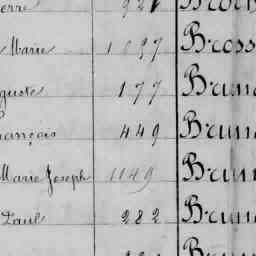 erre 921 Broch
Marie 1037 Bross
guste 177 Brun
rançois 449 Brun
Marie Joseph 1149 Brun
Paul 282 Brun
Brun